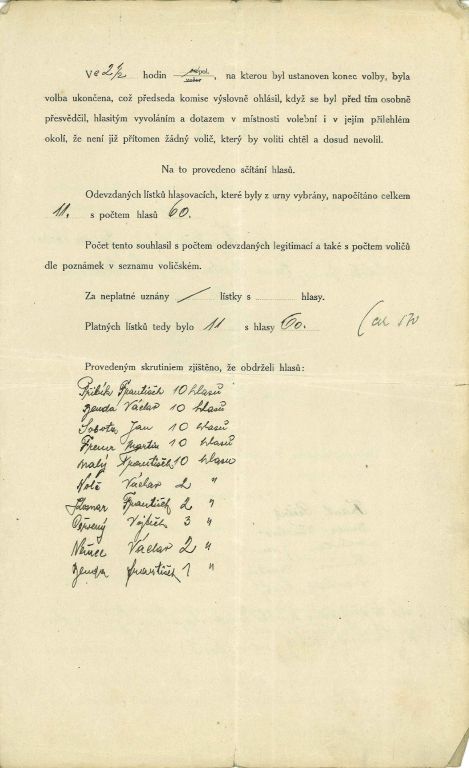 Ve 2 1/2 hodin odpol., na kterou byl ustanoven konec volby, byla
volba ukončena, což předseda komise výslovně ohlásil, když se byl před tím osobně
přesvědčil, hlasitým vyvoláním a dotazem v místnosti volební i v jejím přilehlém
okolí, že není již přítomen žádný volič, který by voliti chtěl a dosud nevolil.
Na to provedeno sčítání hlasů.
Odevzdaných lístků hlasovacích, které byly z urny vybrány, napočítáno celkem
11. s počtem hlasů 60.
Počet tento souhlasil s počtem odevzdaných legitimací a také s počtem voličů
dle poznámek v seznamu voličském.
Za neplatné uznány / lístky s hlasy.
Platných lístků tedy bylo 11 s hlasy 60.
Provedeným skrutiniem zjištěno, že obdrželi hlasů:
František 10 hlasů
Zenda Václav 10 hlasů
Sobota Jan 10 hlasů
Martin 10 hlasů
Malý František 10 hlasů
Václav 2 "
František 2 "
Červený Vojtěch 3 "
Němec Václav 2 "
Zenda František 1 "